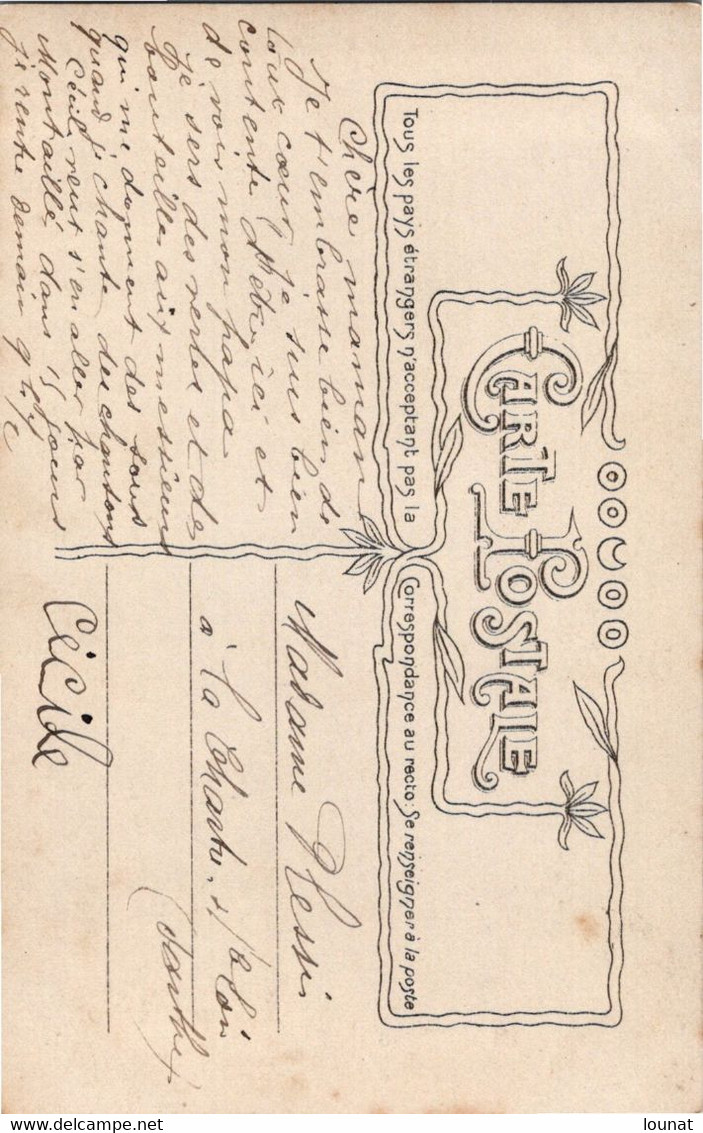 CARTE POSTALE
Tous les pays étrangers n'acceptant pas la Correspondance au recto: Se renseigner à la poste
Chère maman
Je t'embrasse bien de
tout cœur je suis bien
contente d'être ici et
de voir mon papa
je sers des verles et des
bouteilles aux messieurs
qui me donnent des sous
quand j'chante des chansons
Cécile veut s'en aller par
Montaillé dans 15 jours
je rentre demain
Cécile
Madame Plessi
à La Chartre s/ le Loir
(Sarthe)
lounat